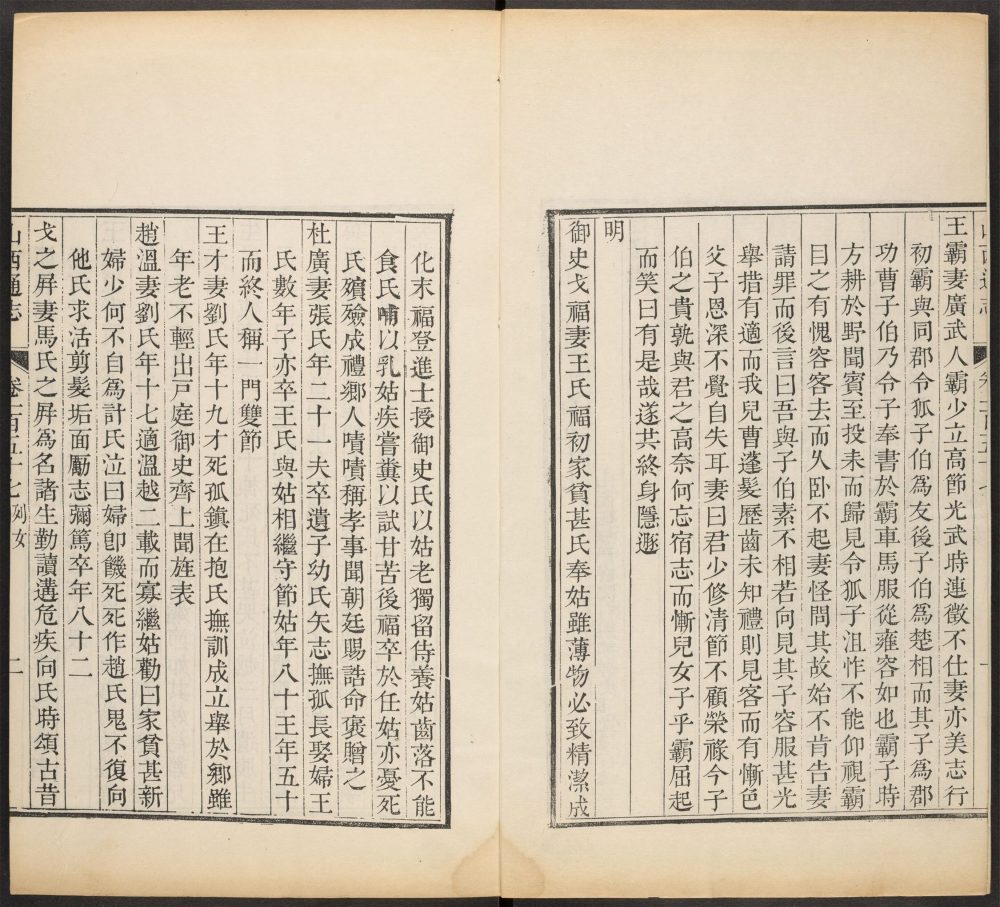 山西通志
王霸妻廣武人霸少立高節光武時連徵不仕妻亦美志行
初霸與同郡令狐子伯爲友後子伯爲楚相而其子爲郡
功曹子伯乃令子奉書於霸車馬服從雍容如也霸子時
方耕於野聞賓至投耒而歸見令狐子沮怍不能仰視霸
目之有愧容客去而久卧不起妻怪問其故始不肯告妻
請罪而後言曰吾與子伯素不相若向見其子容服甚光
舉措有適而我兒曹蓬髮歷齒未知禮則見客而有慚色
父子恩深不覺自失耳妻曰君少修清節不顧榮祿今子
伯之貴孰與君之高奈何忘宿志而慚兒女子乎霸屈起
而笑曰有是哉遂共終身隱遯
明
御史戈福妻王氏福初家貧甚氏奉姑雖薄物必致精潔成
化末福登進士授御史氏以姑老獨留侍養姑齒落不能
食氏哺以乳姑疾嘗糞以試甘苦後福卒於任姑亦憂死
氏殯殮成禮鄉人嘖嘖稱孝事聞朝廷賜誥命褒贈之
杜廣妻張氏年二十一夫卒遺子幼氏矢志撫孤長娶婦王
氏數年子亦卒王氏與姑相繼守節姑年八十王年五十
而終人稱一門雙節
王才妻劉氏年十九才死孤鎮在抱氏撫訓成立舉於鄉雖
年老不輕出戸庭御史齊上聞旌表
趙溫妻劉氏年十七適溫越二載而寡繼姑勸曰家貧甚新
婦少何不自爲計氏泣曰婦卽饑死死作趙氏鬼不復向
他氏求活剪髮垢面勵志彌篤卒年八十二
戈之屏妻馬氏之屏爲名諸生勤讀遘危疾向氏時頌古昔
山西通志 卷一百五十七 列女 二